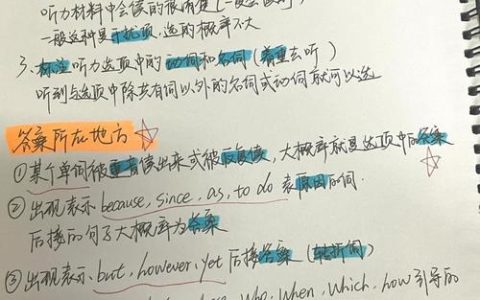 听力材料中会读的很清楚(一般会读
一般这种是干扰项,选的概率不大
3、标注听力选项中的动词和名词(着重去听)
听到与选项中除共有词以外的名词或动词就可以选
答案所在地方
①某个单词被重音读出来或被反复读,大概率就是选项中的答案
②出现表示because, since, as, to do表原因的词.
后接的句子大概率为答案
③出现表示but, however, yet后接答案(转折词)
Who, When, Which, how引导的